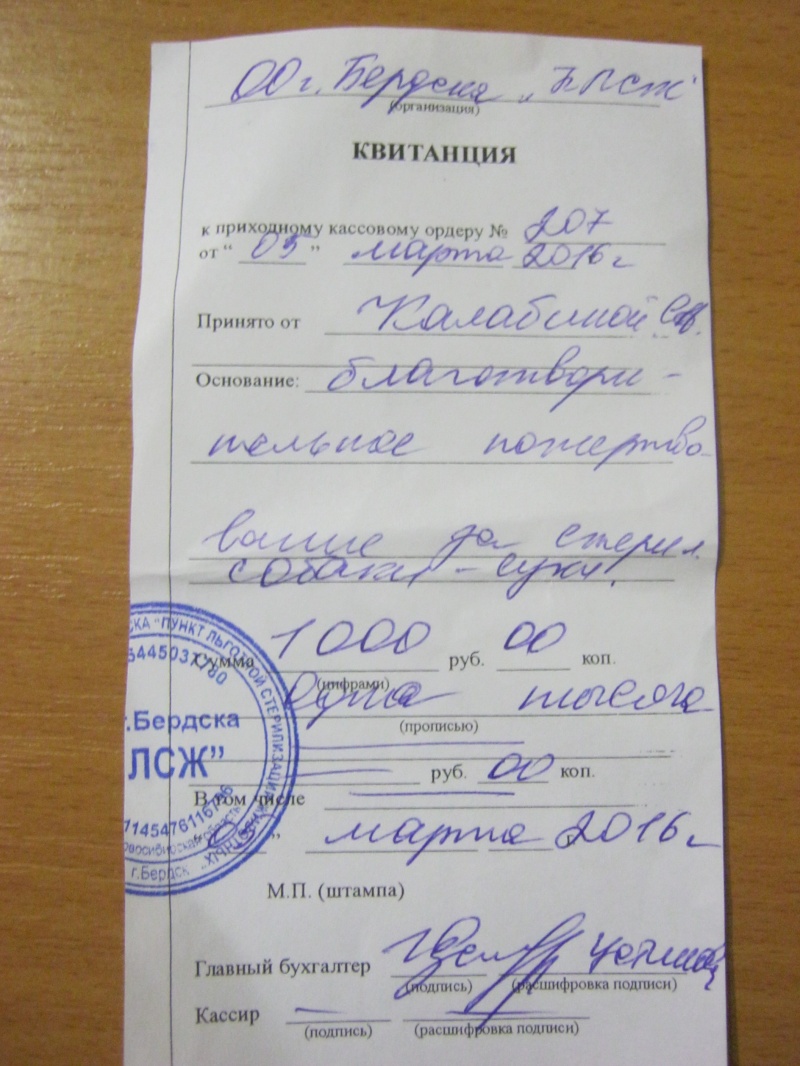 ОО г. Бердска „ПЛСЖ"
(организация)
КВИТАНЦИЯ
к приходному кассовому ордеру № 207
от “ 05 ” марта 2016 г
Принято от Калабиной
Основание: благотвори -
тельное пожертво-
вание за стерил.
собаки - суки.
Сумма 1000 руб. 00 коп.
(цифрами)
Одна тысяча
(прописью)
руб. 00 коп.
В том числе
” марта 2016 г
М.П. (штампа)
Главный бухгалтер
(подпись) (расшифровка подписи)
Кассир
(подпись) (расшифровка подписи)
СКА “ПУНКТ ЛЬГОТНОЙ СТЕРИЛИЗАЦИИ ЖИВОТНЫХ”
г.Бердска
ЛСЖ”
Новосибирская область
г.Бердск